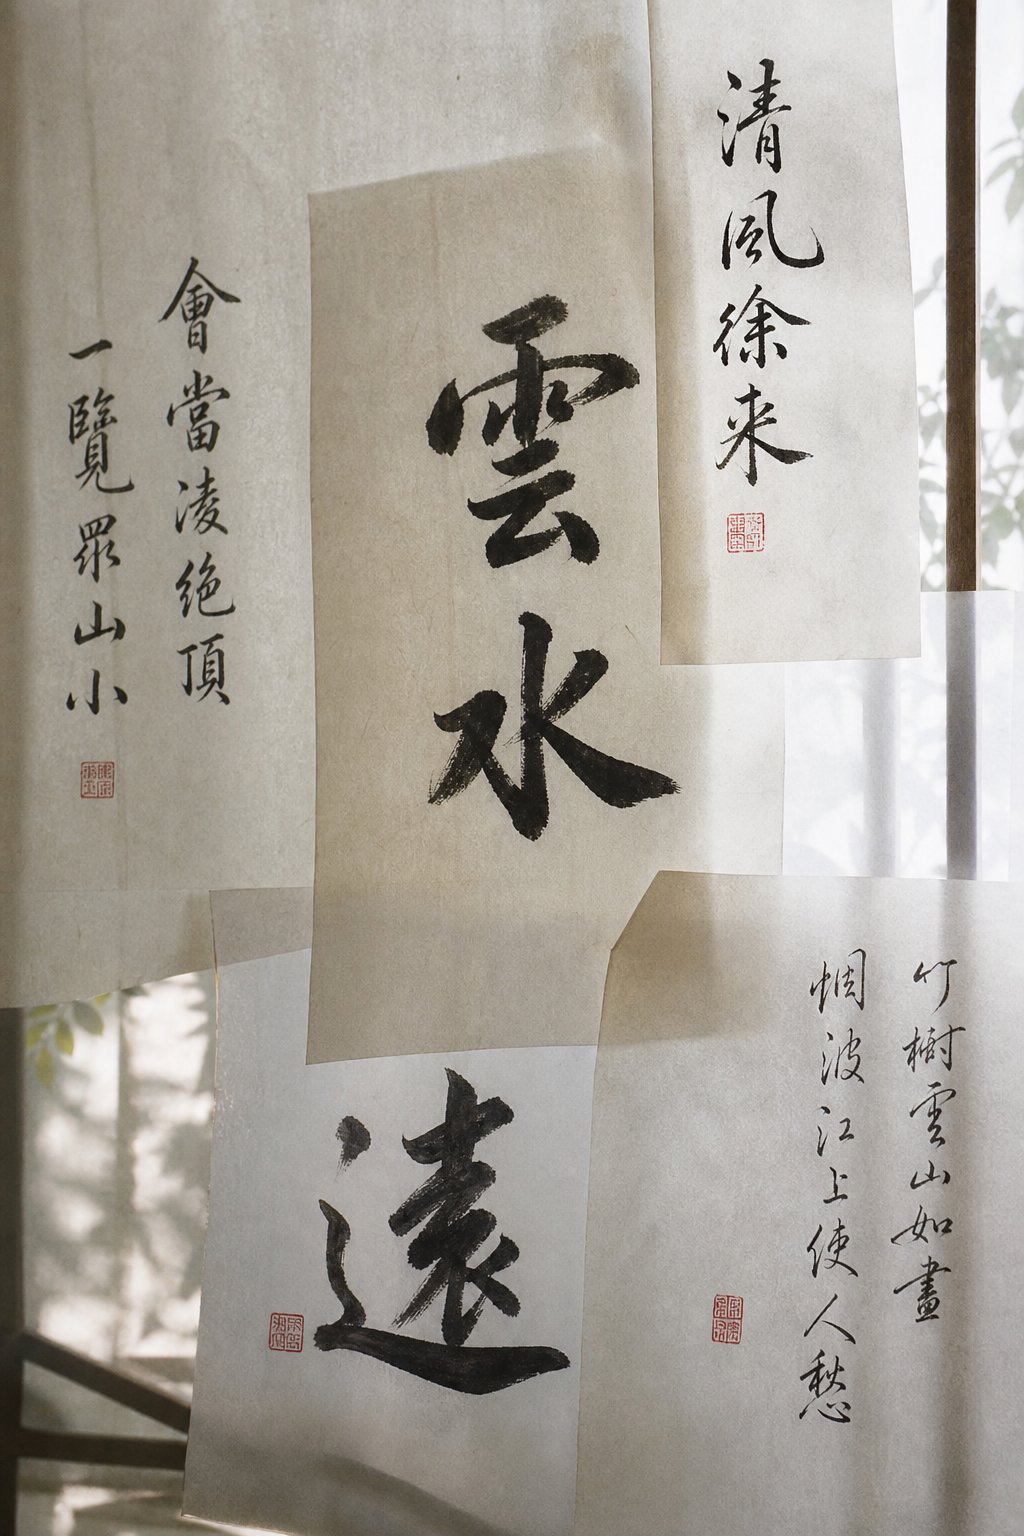 清風徐来
雲水
會當淩絶頂
一覽眾山小
竹樹雲山如畫
惆波江上使人愁
遠